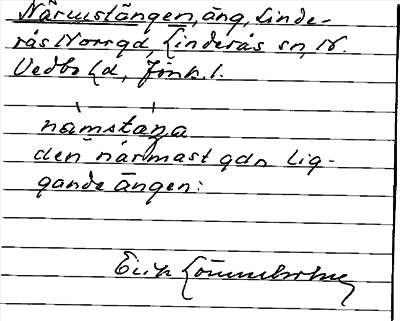 Närmstängen, äng, Linde-
rås Norrgd, Linderås sn, N.
Vedbo hd, Jönk. l.
namstaŋa
den närmast gdn lig-
gande ängen:
Erik